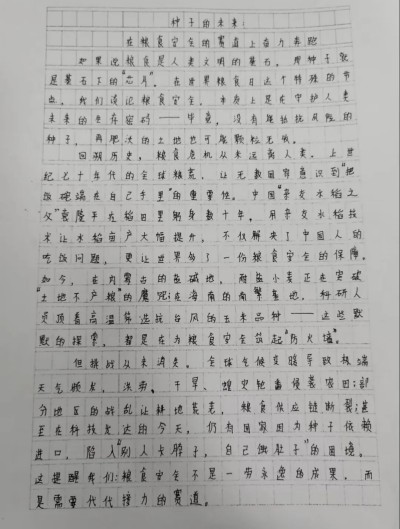 种子的未来：
在粮食安全的赛道上奋力奔跑
如果说粮食是人类文明的基石，那种子就
是基石下的“芯片”。在世界粮食日这个特殊的节
点，我们谈论粮食安全，本质上是在守护人类
未来的生存密码——毕竟，没有抵抗风险的
种子，再肥沃的土地也可能颗粒无收。
回溯历史，粮食危机从未远离人类。上世
纪七十年代的全球粮荒，让无数国家意识到“把
饭碗端在自己手里”的重要性。中国“杂交水稻之
父”袁隆平在稻田里躬身数十年，用杂交水稻技
术让水稻亩产大幅提升，不仅解决了中国人的
吃饭问题，更让世界多了一份粮食安全的保障。
如今，在内蒙古的盐碱地，耐盐小麦正在突破
“土地不产粮”的魔咒；在海南的南繁基地，科研人
员顶着高温筛选抗台风的玉米品种——这些默
默的探索，都是在为粮食安全筑起“防火墙”。
但挑战从未消失。全球气候变暖导致极端
天气频发，洪涝、干旱、蝗灾轮番侵袭农田；部
分地区的战乱让耕地荒芜，粮食供应链断裂；甚
至在科技发达的今天，仍有国家因为种子依赖
进口，陷入“别人卡脖子，自己饿肚子”的困境。
这提醒我们：粮食安全不是一劳永逸的成果，而
是需要代代接力的赛道。